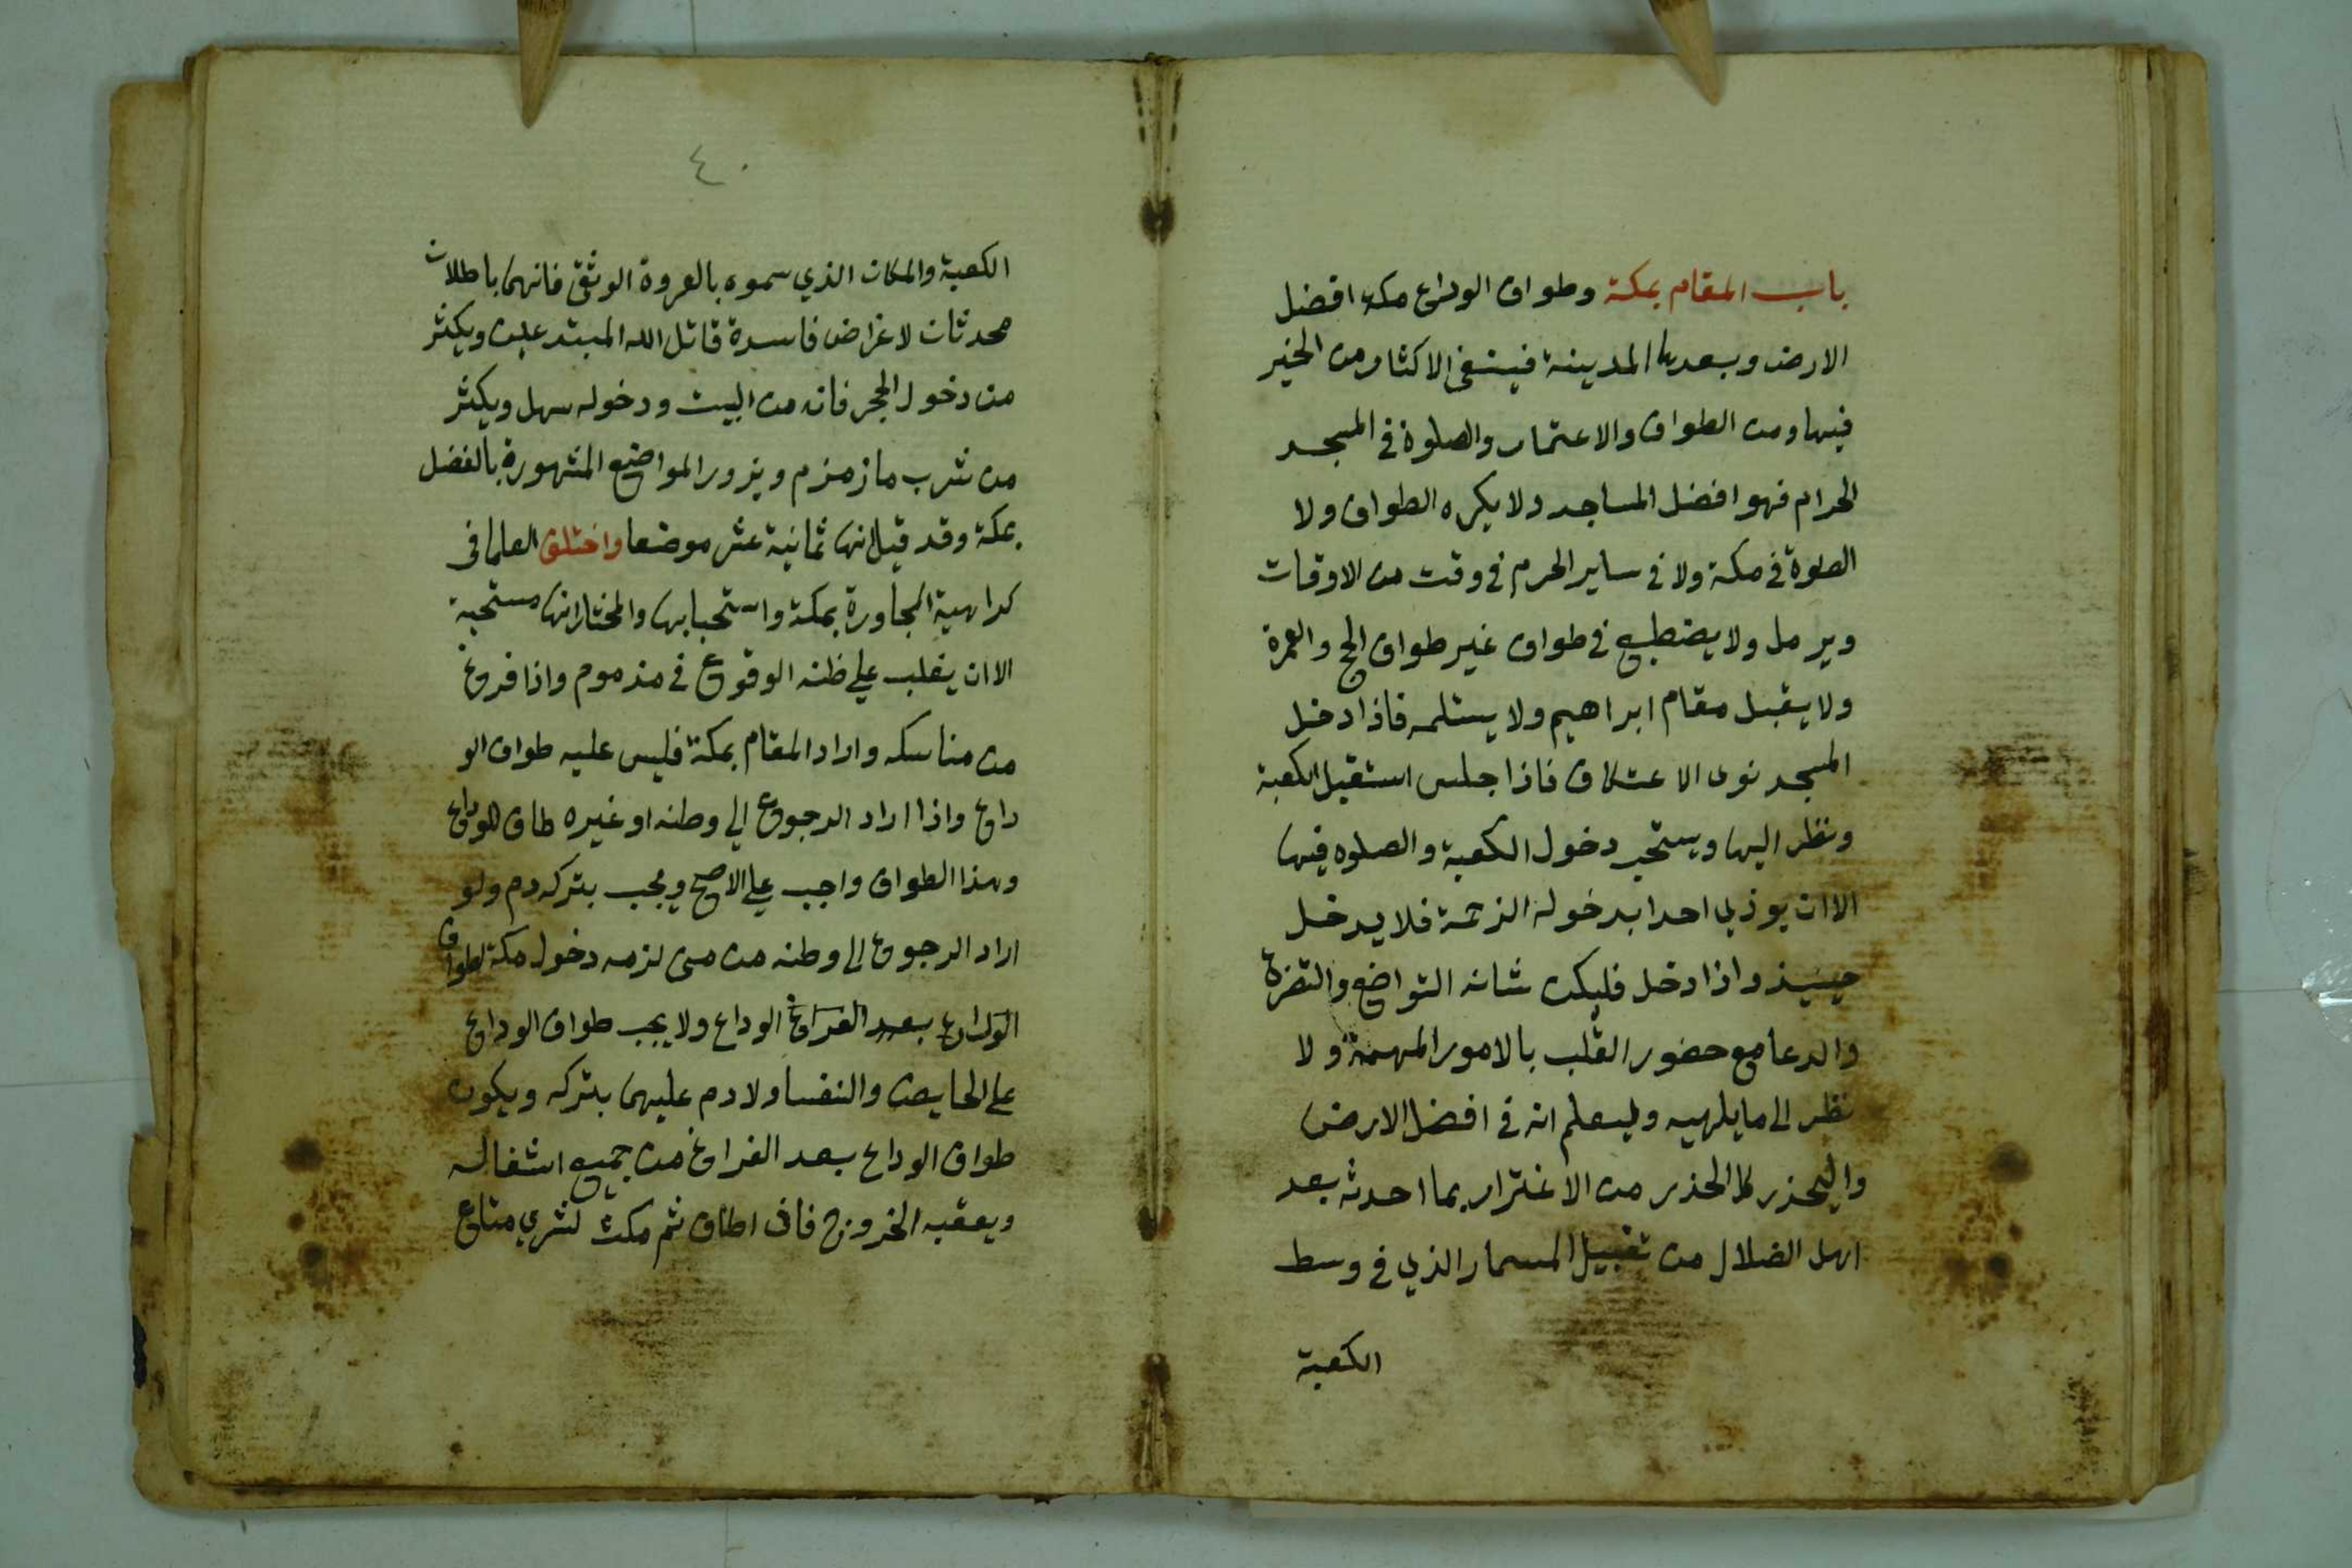 باب المقام بمكة وطواف الوداع مكة افضل
الارض وبعدها المدينة فينبغى الاكثار من الخير
فيها ومن الطواف والاعتمار والصلوة في المسجد
الحرام فهو افضل المساجد ولا يكره الطواف ولا
الصلوة في مكة ولا في ساير الحرم في وقت من الاوقات
ويرمل ولا يضطبع في طواف غير طواف الحج والعمرة
ولا يقبل مقام ابراهيم ولا يستلمه فاذا دخل
المسجد نوى الاعتكاف فاذا جلس استقبل الكعبة
ونظر اليها ويستحب دخول الكعبة والصلوه فيها
الا ان يوذي احدا بدخوله الزحمة فلا يدخل
حينيذ واذا دخل فليكن شانه التواضع والتضرع
والدعا مع حضور القلب بالامور المهمة ولا
نظر الى ما يلهيه وليعلم انه في افضل الارض
واليحذر كل الحذر من الاغترار بما احدثه بعد
اهل الضلال من تقبيل المسمار الذي في وسط
الكعبة
٤٠
الكعبة والمكان الذي سموه بالعروة الوثقى فانهما باطلان
محدثان لاغراض فاسدة قاتل الله المبتدعين ويكثر
من دخول الحجر فانه من البيت ودخوله سهل ويكثر
من شرب ما زمزم ويزور المواضع المشهورة بالفضل
بمكة وقد قيل انها ثمانية عشر موضعا واختلف العلما في
كراهية المجاورة بمكة واستحبابها والمختار انها مستحبة
الا ان يغلب علي ظنه الوقوع في مذموم واذا فرغ
من مناسكه واراد المقام بمكة فليس عليه طواف الو
داع واذا اراد الرجوع الي وطنه او غيره طاف للوداع
وهذا الطواف واجب علي الاصح ويجب بتركه دم ولو
اراد الرجوع الى وطنه من منى لزمه دخول مكة لطواف
الوداع بعد الفراغ الوداع ولا يجب طواف الوداع
على الحايض والنفسا ولا دم عليهما بتركه ويكون
طواف الوداع بعد الفراغ من جميع اشغاله
ويعقبه الخروج فان اطاف ثم مكث لشري متاع